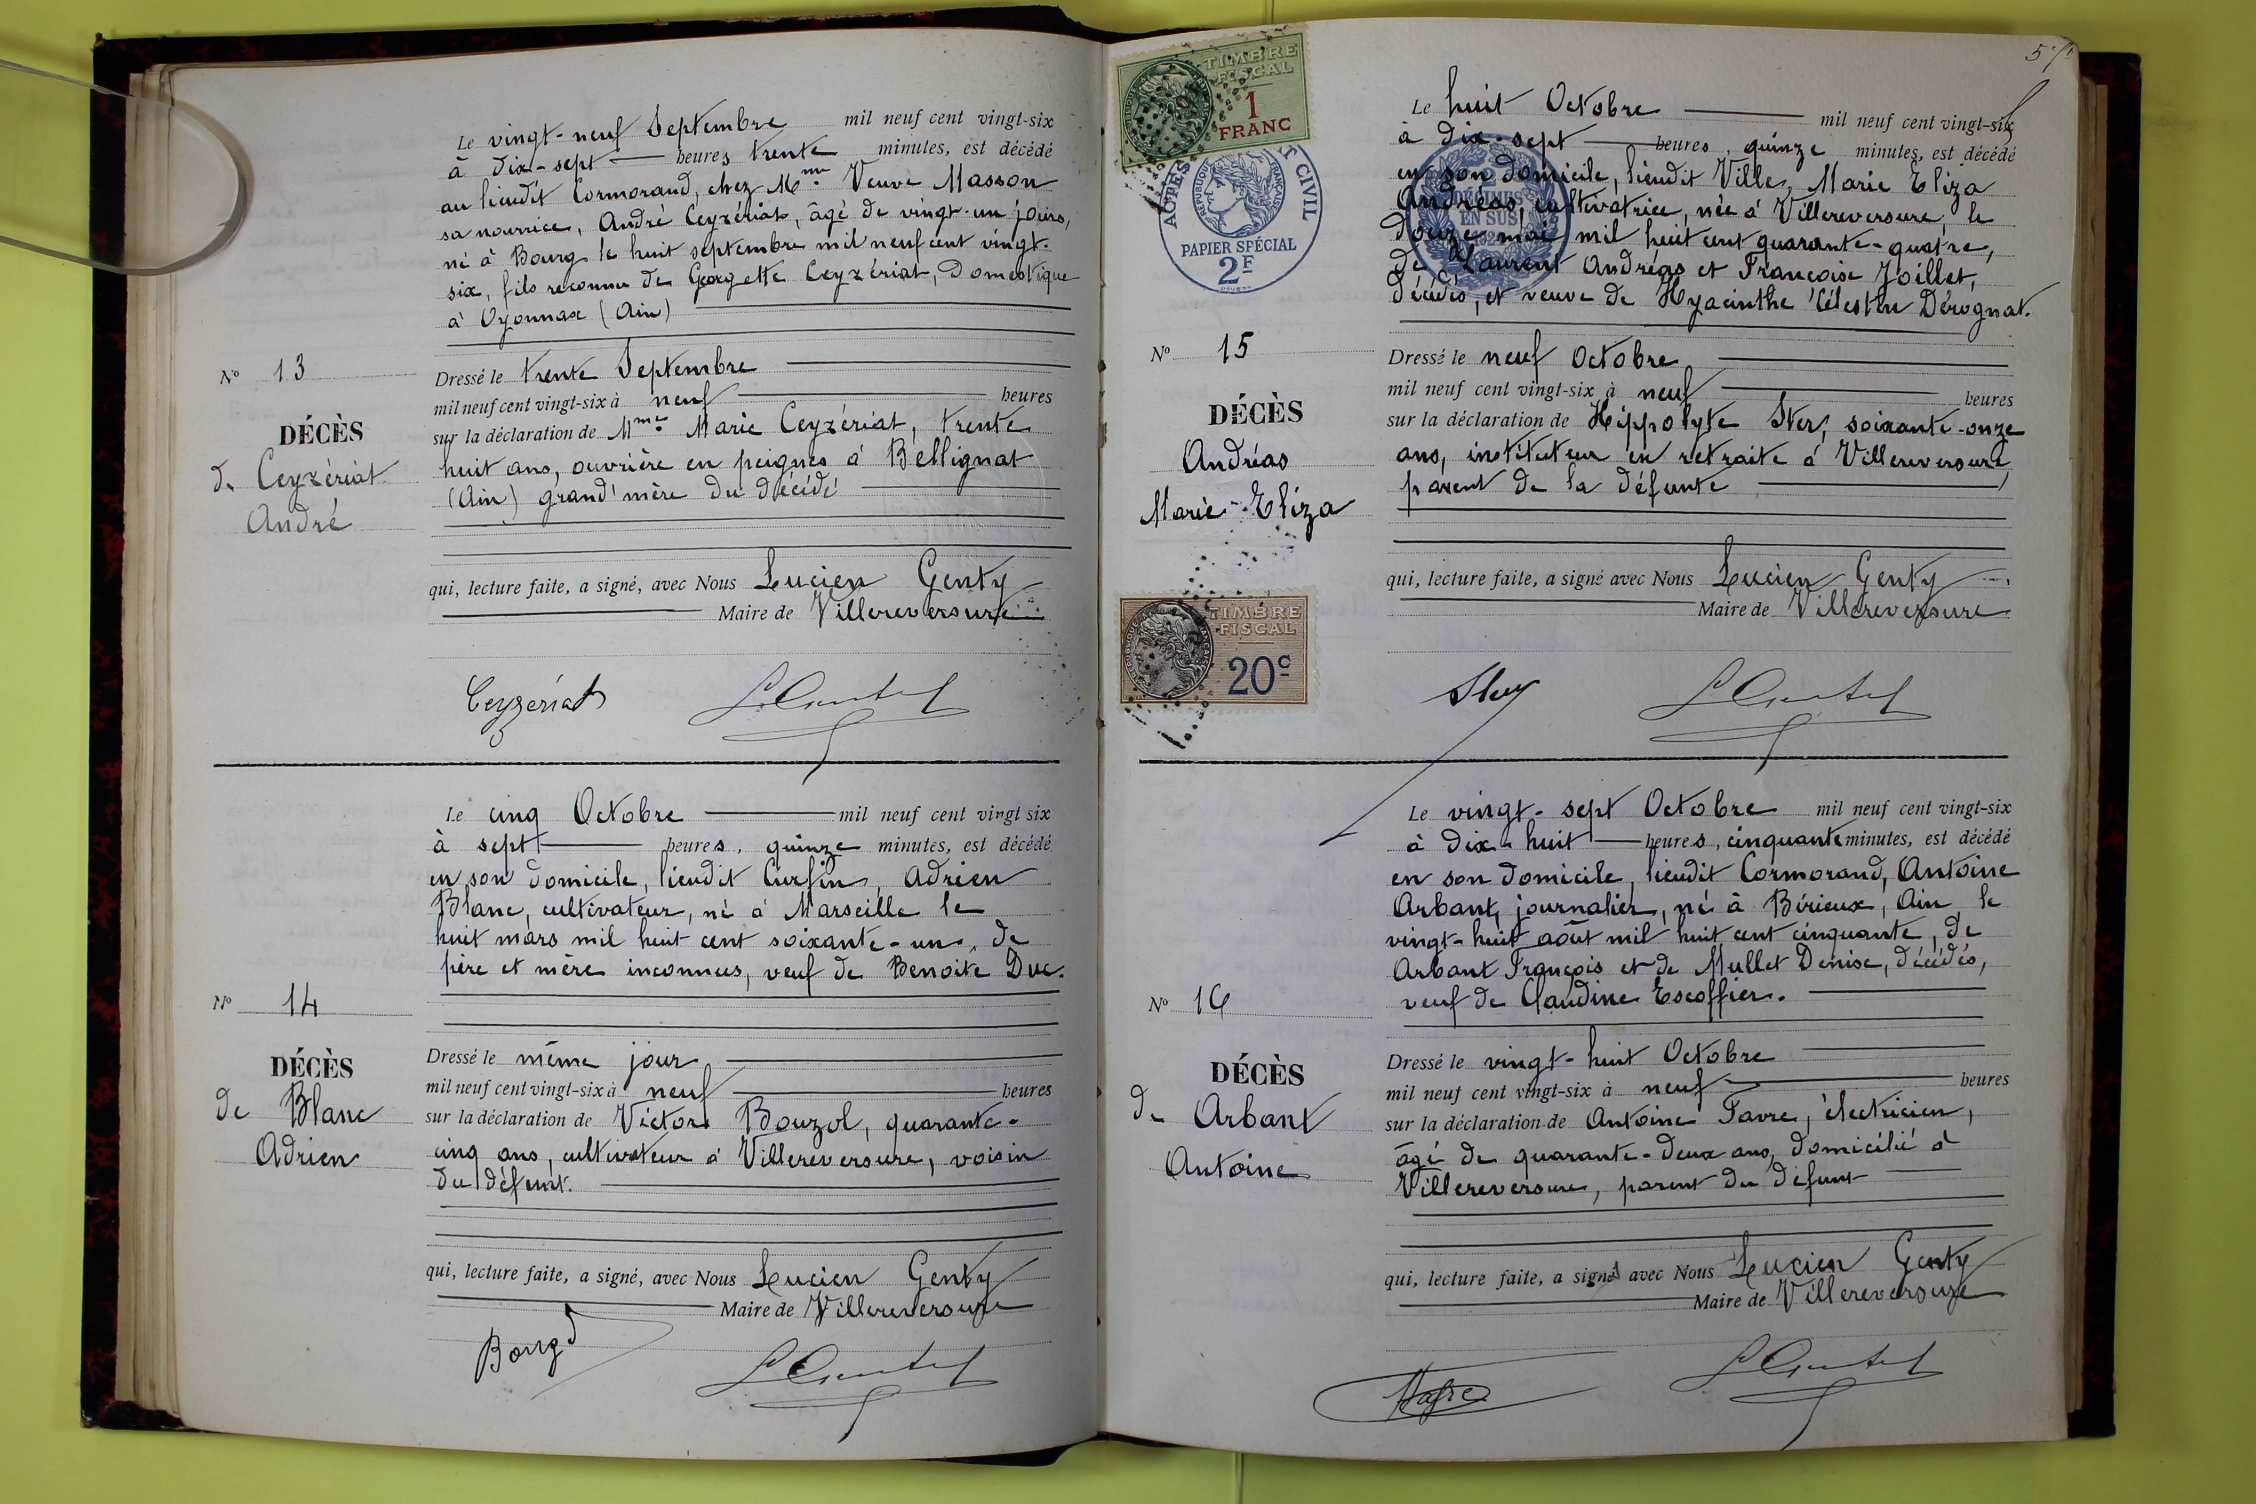 Le vingt-neuf Septembre mil neuf cent vingt-six
à dix-sept heures trente minutes, est décédé
au lieudit Cormorand, chez Mme Veuve Masson
sa nourrice, André Ceyzériat, âgé de vingt-un jours,
né à Bourg le huit septembre mil neuf cent vingt-
six, fils reconnu de Georgette Ceyzériat, Domestique
à Oyonnax (Ain)
No 13
DÉCÈS
de Ceyzériat
André
Dressé le trente Septembre
mil neuf cent vingt-six à neuf heures
sur la déclaration de Mme Marie Ceyzériat, trente
huit ans, ouvrière en peignes à Bellignat
(Ain) grand'mère du décédé
qui, lecture faite, a signé, avec Nous Lucien Genty
Maire de Villereversure
Ceyzériat
Le cinq Octobre mil neuf cent vingt six
à sept heures, quinze minutes, est décédé
en son domicile, lieudit Curfin, Adrien
Blanc, cultivateur, né à Marseille le
huit mars mil huit cent soixante-un, de
père et mère inconnus, veuf de Benoite Duc.
No 14
DÉCÈS
de Blanc
Adrien
Dressé le même jour
mil neuf cent vingt-six à neuf heures
sur la déclaration de Victor Bouzol, quarante-
cinq ans, cultivateur à Villereversure, voisin
du défunt.
qui, lecture faite, a signé, avec Nous Lucien Genty
Maire de Villereversure
TIMBRE
FISCAL
1
FRANC
ACTES
CIVIL
RÉPUBLIQUE FRANÇAISE
PAPIER SPÉCIAL
2F
2
DÉCIMES
EN SUS
Le huit Octobre mil neuf cent vingt-six
à dix-sept heures, quinze minutes, est décédé
en son domicile, lieudit Ville, Marie Eliza
Andréas, cultivatrice, née à Villereversure le
douze mai mil huit cent quarante-quatre,
de Laurent Andréas et Françoise Joillet,
décédés, et veuve de Hyacinthe Célestin Dérognat.
No 15
DÉCÈS
Andréas
Marie-Eliza
Dressé le neuf Octobre
mil neuf cent vingt-six à neuf heures
sur la déclaration de Hippolyte Ster, soixante-onze
ans, instituteur en retraite à Villereversure,
parent de la défunte
qui, lecture faite, a signé avec Nous Lucien Genty
Maire de Villereversure
TIMBRE
FISCAL
20c
Le vingt-sept Octobre mil neuf cent vingt-six
à dix-huit heures, cinquante minutes, est décédé
en son domicile, lieudit Cormorand, Antoine
Arbant, journalier, né à Birieux, Ain le
vingt-huit août mil huit cent cinquante, de
Arbant François et de Mullet Denise, décédés,
veuf de Claudine Escoffier.
No 16
DÉCÈS
de Arbant
Antoine
Dressé le vingt-huit Octobre
mil neuf cent vingt-six à neuf heures
sur la déclaration de Antoine Favre, électricien,
âgé de quarante-deux ans, domicilié à
Villereversure, parent du défunt
qui, lecture faite, a signé avec Nous Lucien Genty
Maire de Villereversure